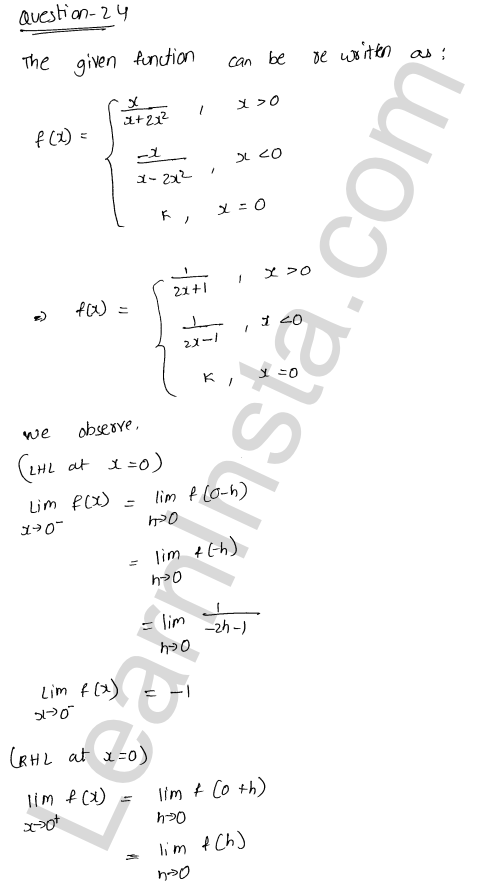 Question-24
The given function can be re written as:
f(x) = { x/(x+2x²) , x>0
-x/(x-2x²) , x<0
K , x=0
⇒ f(x) = { 1/(2x+1) , x>0
1/(2x-1) , x<0
K , x=0
we observe,
(LHL at x=0)
Lim x→0⁻ f(x) = lim h→0 f(0-h)
= lim h→0 f(-h)
= lim h→0 1/(-2h-1)
Lim x→0⁻ f(x) = -1
(RHL at x=0)
lim x→0⁺ f(x) = lim h→0 f(0+h)
= lim h→0 f(h)
LearnInsta.com